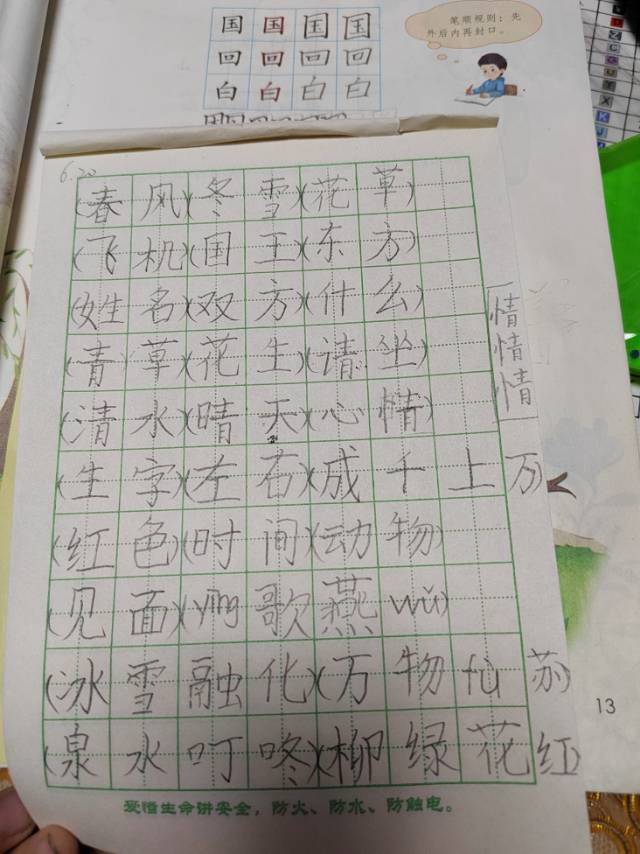 国 国 国 国
回 回 回 回
白 白 白 白
笔顺规则：先
外后内再封口。
6.20
(春风)(冬雪)(花草)
(飞机)(国王)(东方)
(姓名)(双方)(什么)
(青草)(花生)(请坐)
(清水)(晴天)(心情)
情
情
情
(生字)(左右)(成千上万)
(红色)(时间)(动物)
(见面)(yīng歌燕wǔ)
(冰雪融化)(万物fù苏)
(泉水叮咚)(柳绿花红)
爱惜生命讲安全，防火、防水、防触电。
13